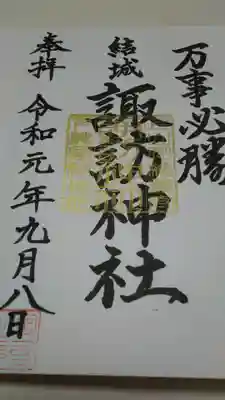 万事必勝
結城
諏訪神社
奉拝
令和元年九月八日